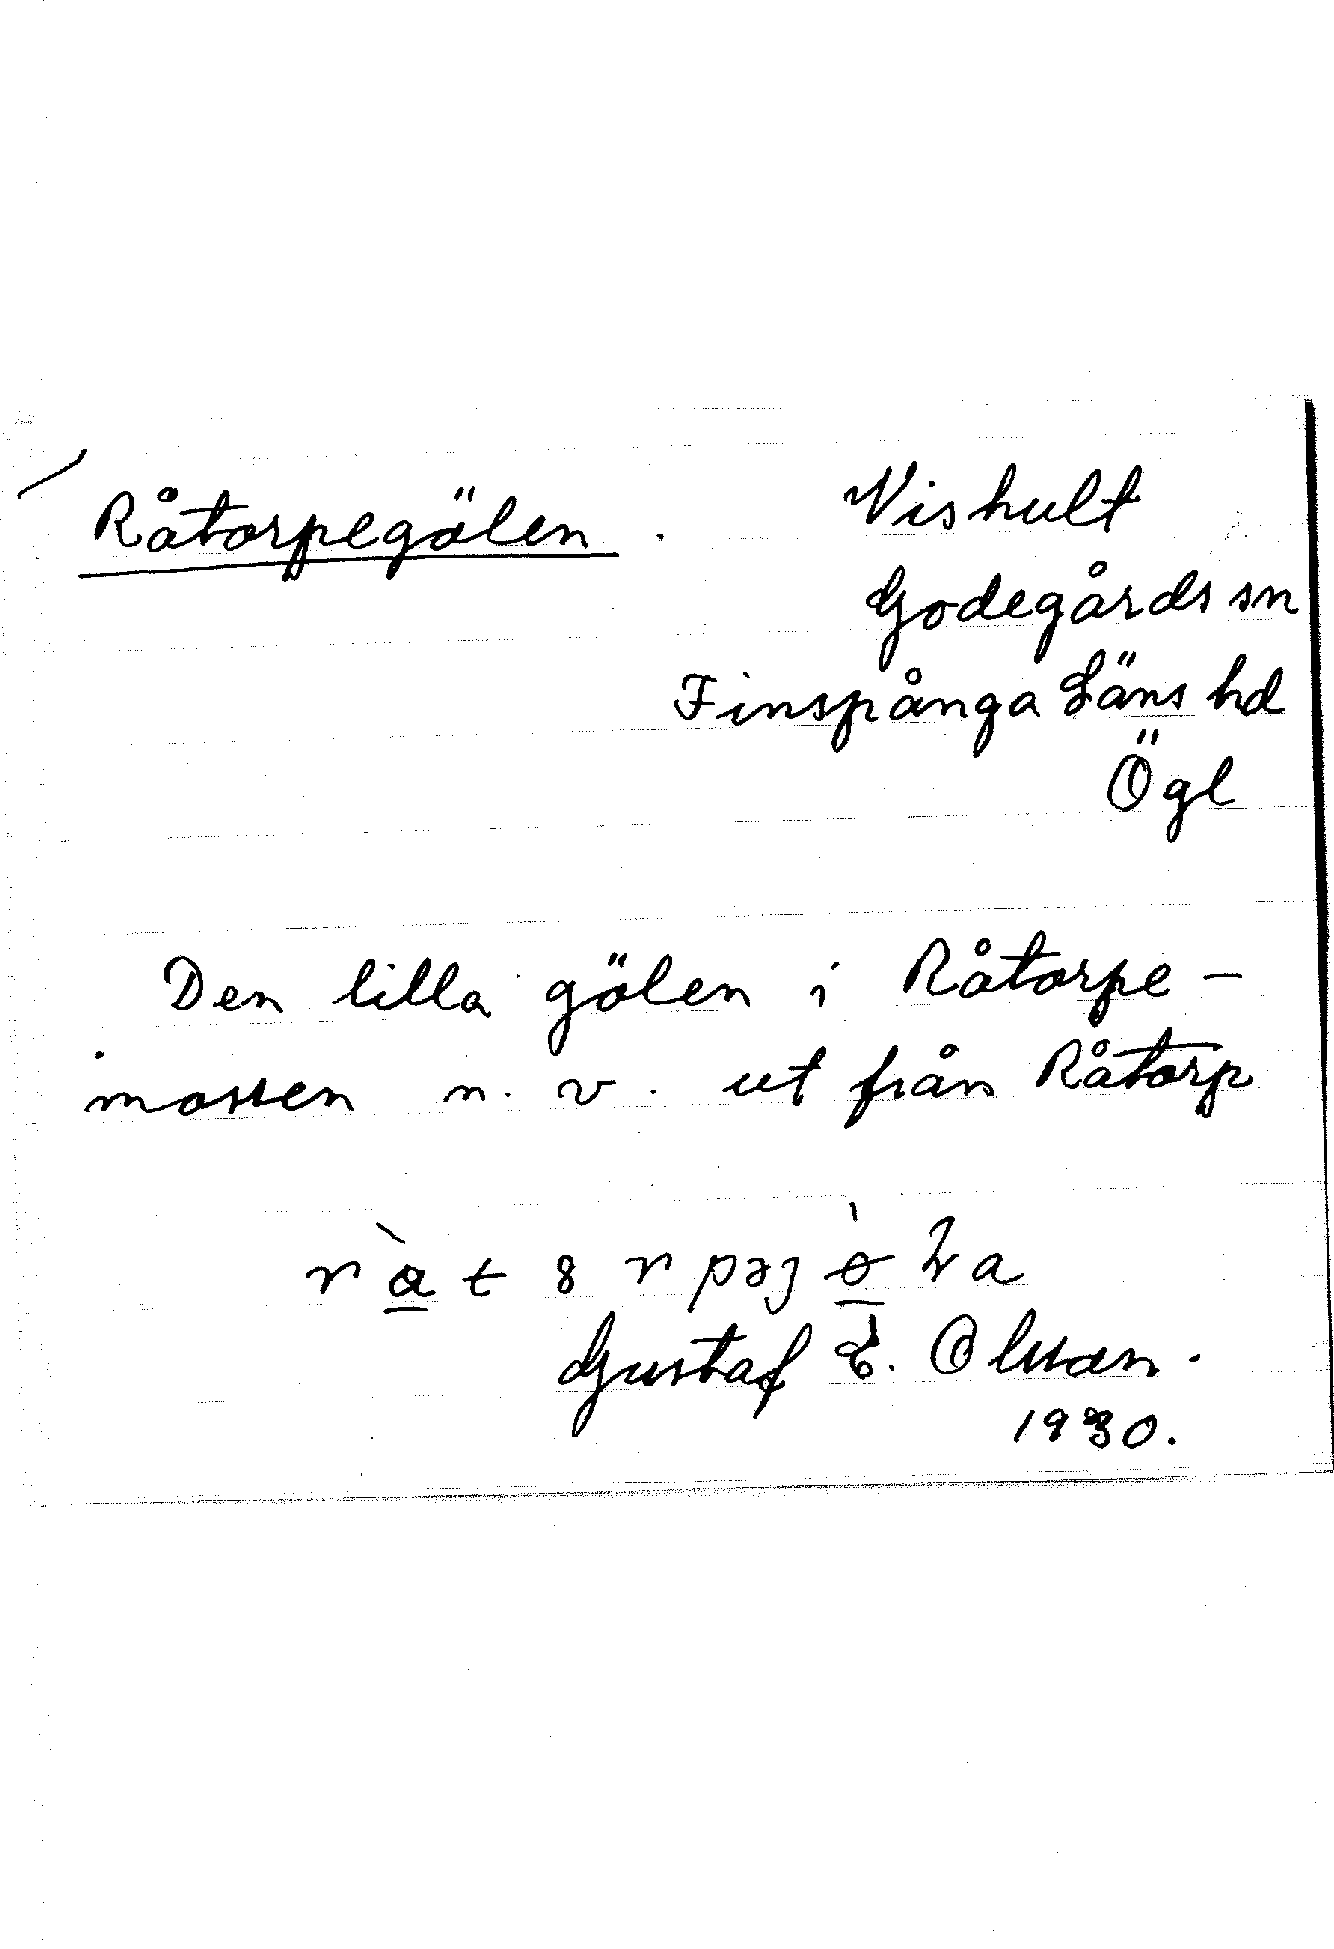 Råtorpegölen . Vishult
Godegårds sn
Finspånga Läns hd
Ögl
Den lilla gölen i Råtorpe -
mossen n. v. ut från Råtorp
Gustaf E. Olsson.
1930.